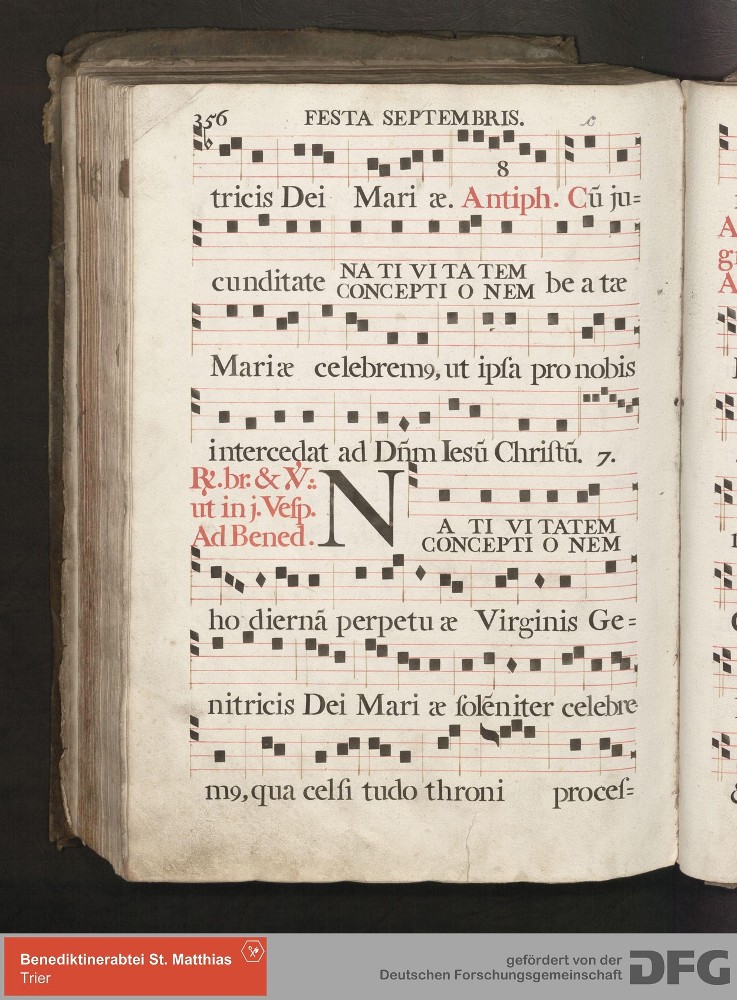 356 FESTA SEPTEMBRIS. c
8
tricis Dei Mari æ. Antiph. Cū ju=
cunditate NATIVITATEM be a tæ
CONCEPTI O NEM
Mariæ celebremꝰ, ut ipſa pro nobis
intercedat ad Dn̄m Iesū Chriſtū. 7.
℟. br. & ℣.:
ut in j. Veſp.
Ad Bened. N A TI VI TATEM
CONCEPTI O NEM
ho diernā perpetu æ Virginis Ge=
nitricis Dei Mari æ ſolēniter celebre
mꝰ, qua celſi tudo throni proceſ=
Benediktinerabtei St. Matthias
Trier
gefördert von der
Deutschen Forschungsgemeinschaft DFG